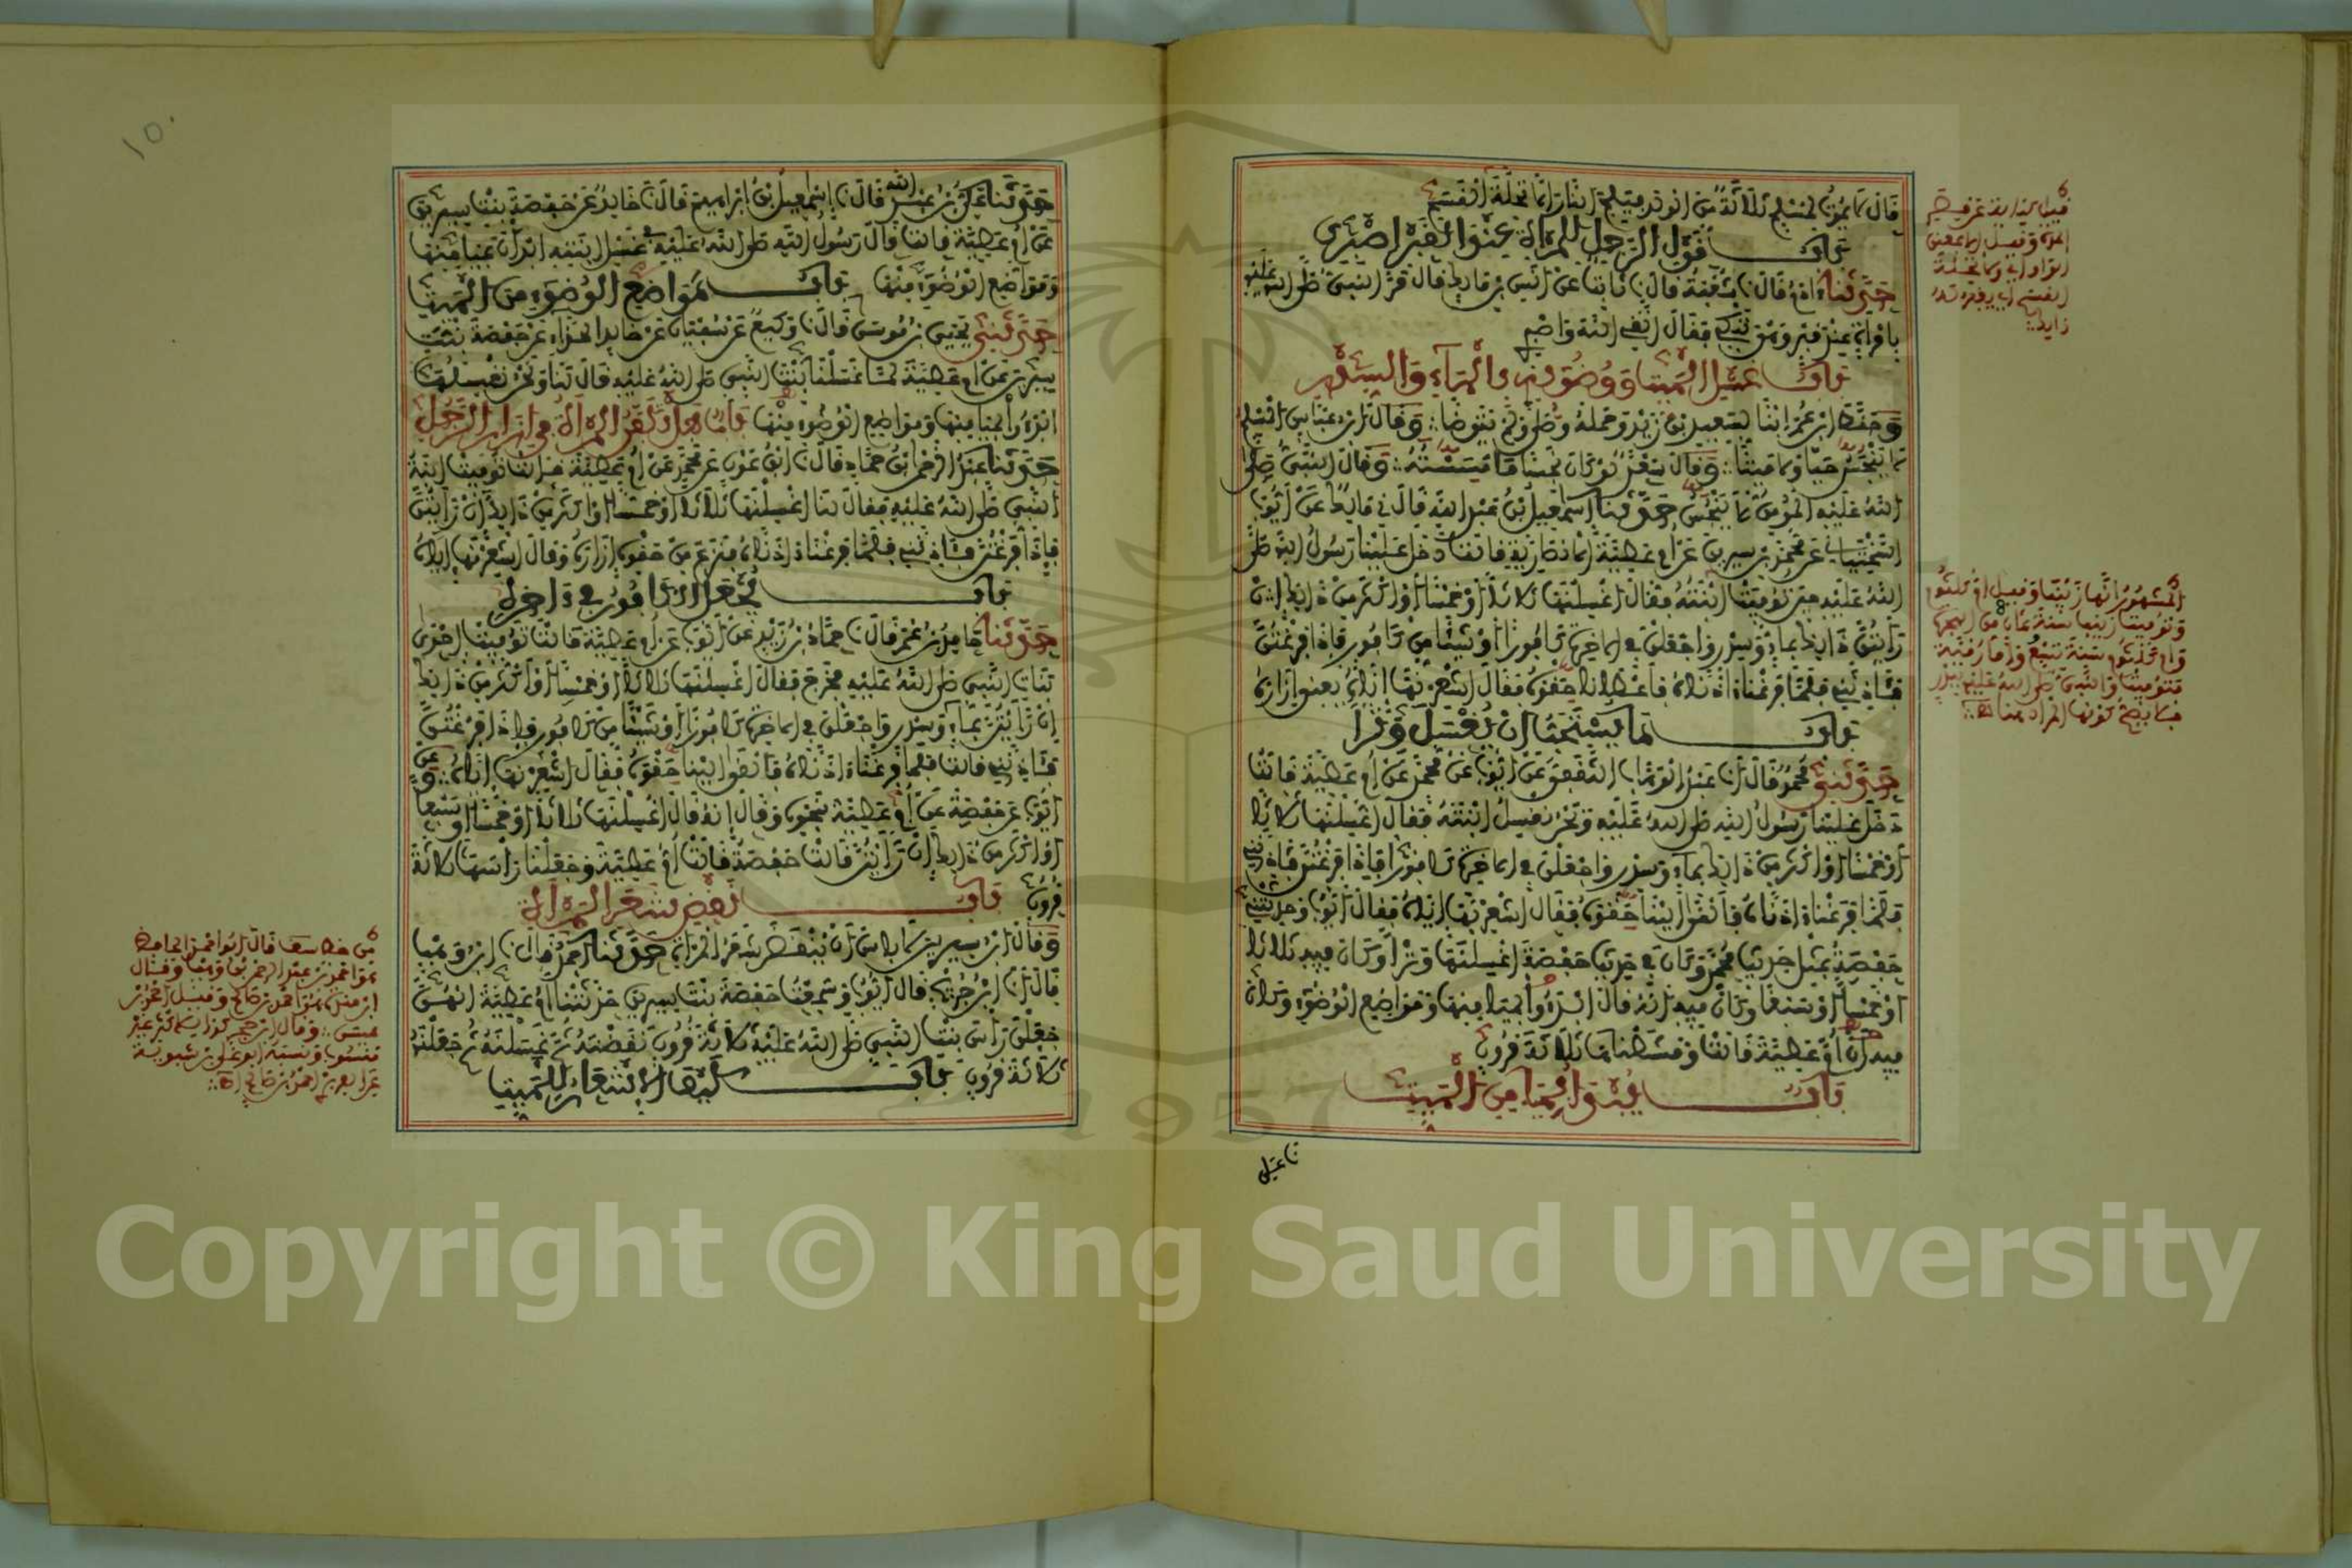 قال لا يموت لمسلم ثلاثة من الولد فيلج النار إلا تحلة القسم
باب قول الرجل للمرأة عند القبر اصبري
حدثنا آدم قال نا شعبة قال نا ثابت عن أنس بن مالك قال مر النبي صلى الله عليه
بامرأة عند قبر وهي تبكي فقال اتقي الله واصبري
باب غسل الميت ووضوئه بالماء والسدر
وحنط ابن عمر ابنا لسعيد بن زيد وحمله وصلى ولم يتوضأ وقال ابن عباس المسلم
لا ينجس حيا ولا ميتا وقال سعد لو كان نجسا ما مسسته وقال النبي صلى
الله عليه المؤمن لا ينجس حدثنا إسماعيل بن عبد الله قال ني مالك عن أيوب
السختياني عن محمد بن سيرين عن أم عطية الأنصارية قالت دخل علينا رسول الله صلى
الله عليه حين توفيت ابنته فقال اغسلنها ثلاثا أو خمسا أو أكثر من ذلك إن
رأيتن ذلك بماء وسدر واجعلن في الآخرة كافورا أو شيئا من كافور فإذا فرغتن
فآذنني فلما فرغنا آذناه فأعطانا حقوه فقال أشعرنها إياه يعني إزاره
باب ما يستحب أن يغسل وترا
حدثني محمد قال نا عبد الوهاب الثقفي عن أيوب عن محمد عن أم عطية قالت
دخل علينا رسول الله صلى الله عليه ونحن نغسل ابنته فقال اغسلنها ثلاثا
أو خمسا أو أكثر من ذلك بماء وسدر واجعلن في الآخرة كافورا فإذا فرغتن فآذنني
فلما فرغنا آذناه فألقى إلينا حقوه فقال أشعرنها إياه فقال أيوب وحدثتني
حفصة بمثل حديث محمد وكان في حديث حفصة اغسلنها وترا وكان فيه ثلاثا
أو خمسا أو سبعا وكان فيه أنه قال ابدءوا بميامنها ومواضع الوضوء وكان
فيه أن أم عطية قالت ومشطناها ثلاثة قرون
باب يبدأ بميامن الميت
نا علي
المشهور أنها زينب وقيل أم كلثوم
وتوفيت زينب سنة ثمان من الهجرة
وأم كلثوم سنة تسع وأما رقية
فتوفيت والنبي صلى الله عليه ببدر
فلا يصح كونها المراد هنا
حدثنا علي بن عبد الله قال نا إسماعيل بن إبراهيم قال نا خالد عن حفصة بنت سيرين
عن أم عطية قالت قال رسول الله صلى الله عليه في غسل ابنته ابدأن بميامنها
ومواضع الوضوء منها باب مواضع الوضوء من الميت
حدثني يحيى بن موسى قال نا وكيع عن سفيان عن خالد الحذاء عن حفصة بنت
سيرين عن أم عطية لما غسلنا بنت النبي صلى الله عليه قال لنا ونحن نغسلها
ابدءوا بميامنها ومواضع الوضوء منها باب هل تكفن المرأة في إزار الرجل
حدثنا عبد الرحمن بن حماد قال نا ابن عون عن محمد عن أم عطية قالت توفيت ابنة
النبي صلى الله عليه فقال لنا اغسلنها ثلاثا أو خمسا أو أكثر من ذلك إن رأيتن
فإذا فرغتن فآذنني فلما فرغنا آذناه فنزع من حقوه إزاره وقال أشعرنها إياه
باب يجعل الكافور في آخره
حدثنا حامد بن عمر قال نا حماد بن زيد عن أيوب عن أم عطية قالت توفيت إحدى
بنات النبي صلى الله عليه فخرج فقال اغسلنها ثلاثا أو خمسا أو أكثر من ذلك
إن رأيتن بماء وسدر واجعلن في الآخرة كافورا أو شيئا من كافور فإذا فرغتن
فآذنني قالت فلما فرغنا آذناه فألقى إلينا حقوه فقال أشعرنها إياه وعن
أيوب عن حفصة عن أم عطية بنحوه وقال إنه قال اغسلنها ثلاثا أو خمسا أو سبعا
أو أكثر من ذلك إن رأيتن قالت حفصة قالت أم عطية وجعلنا رأسها ثلاثة
قرون باب نقض شعر المرأة
وقال ابن سيرين لا بأس أن ينقض شعر المرأة حدثنا أحمد قال نا ابن وهب
قال أنا ابن جريج قال أيوب وسمعت حفصة بنت سيرين حدثتنا أم عطية أنهن
جعلن رأس بنت النبي صلى الله عليه ثلاثة قرون نقضنه ثم غسلنه ثم جعلنه
ثلاثة قرون باب كيف الإشعار للميت
Copyright © King Saud University
1957